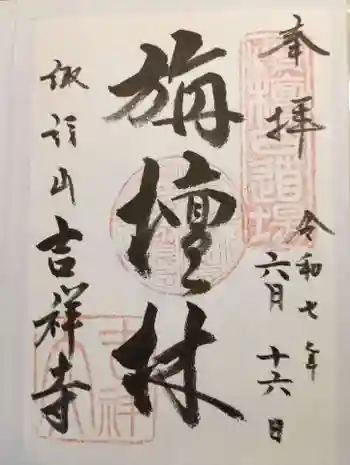 奉拝
令和七年
六月十六日
旃檀林
諏訪山
吉祥寺